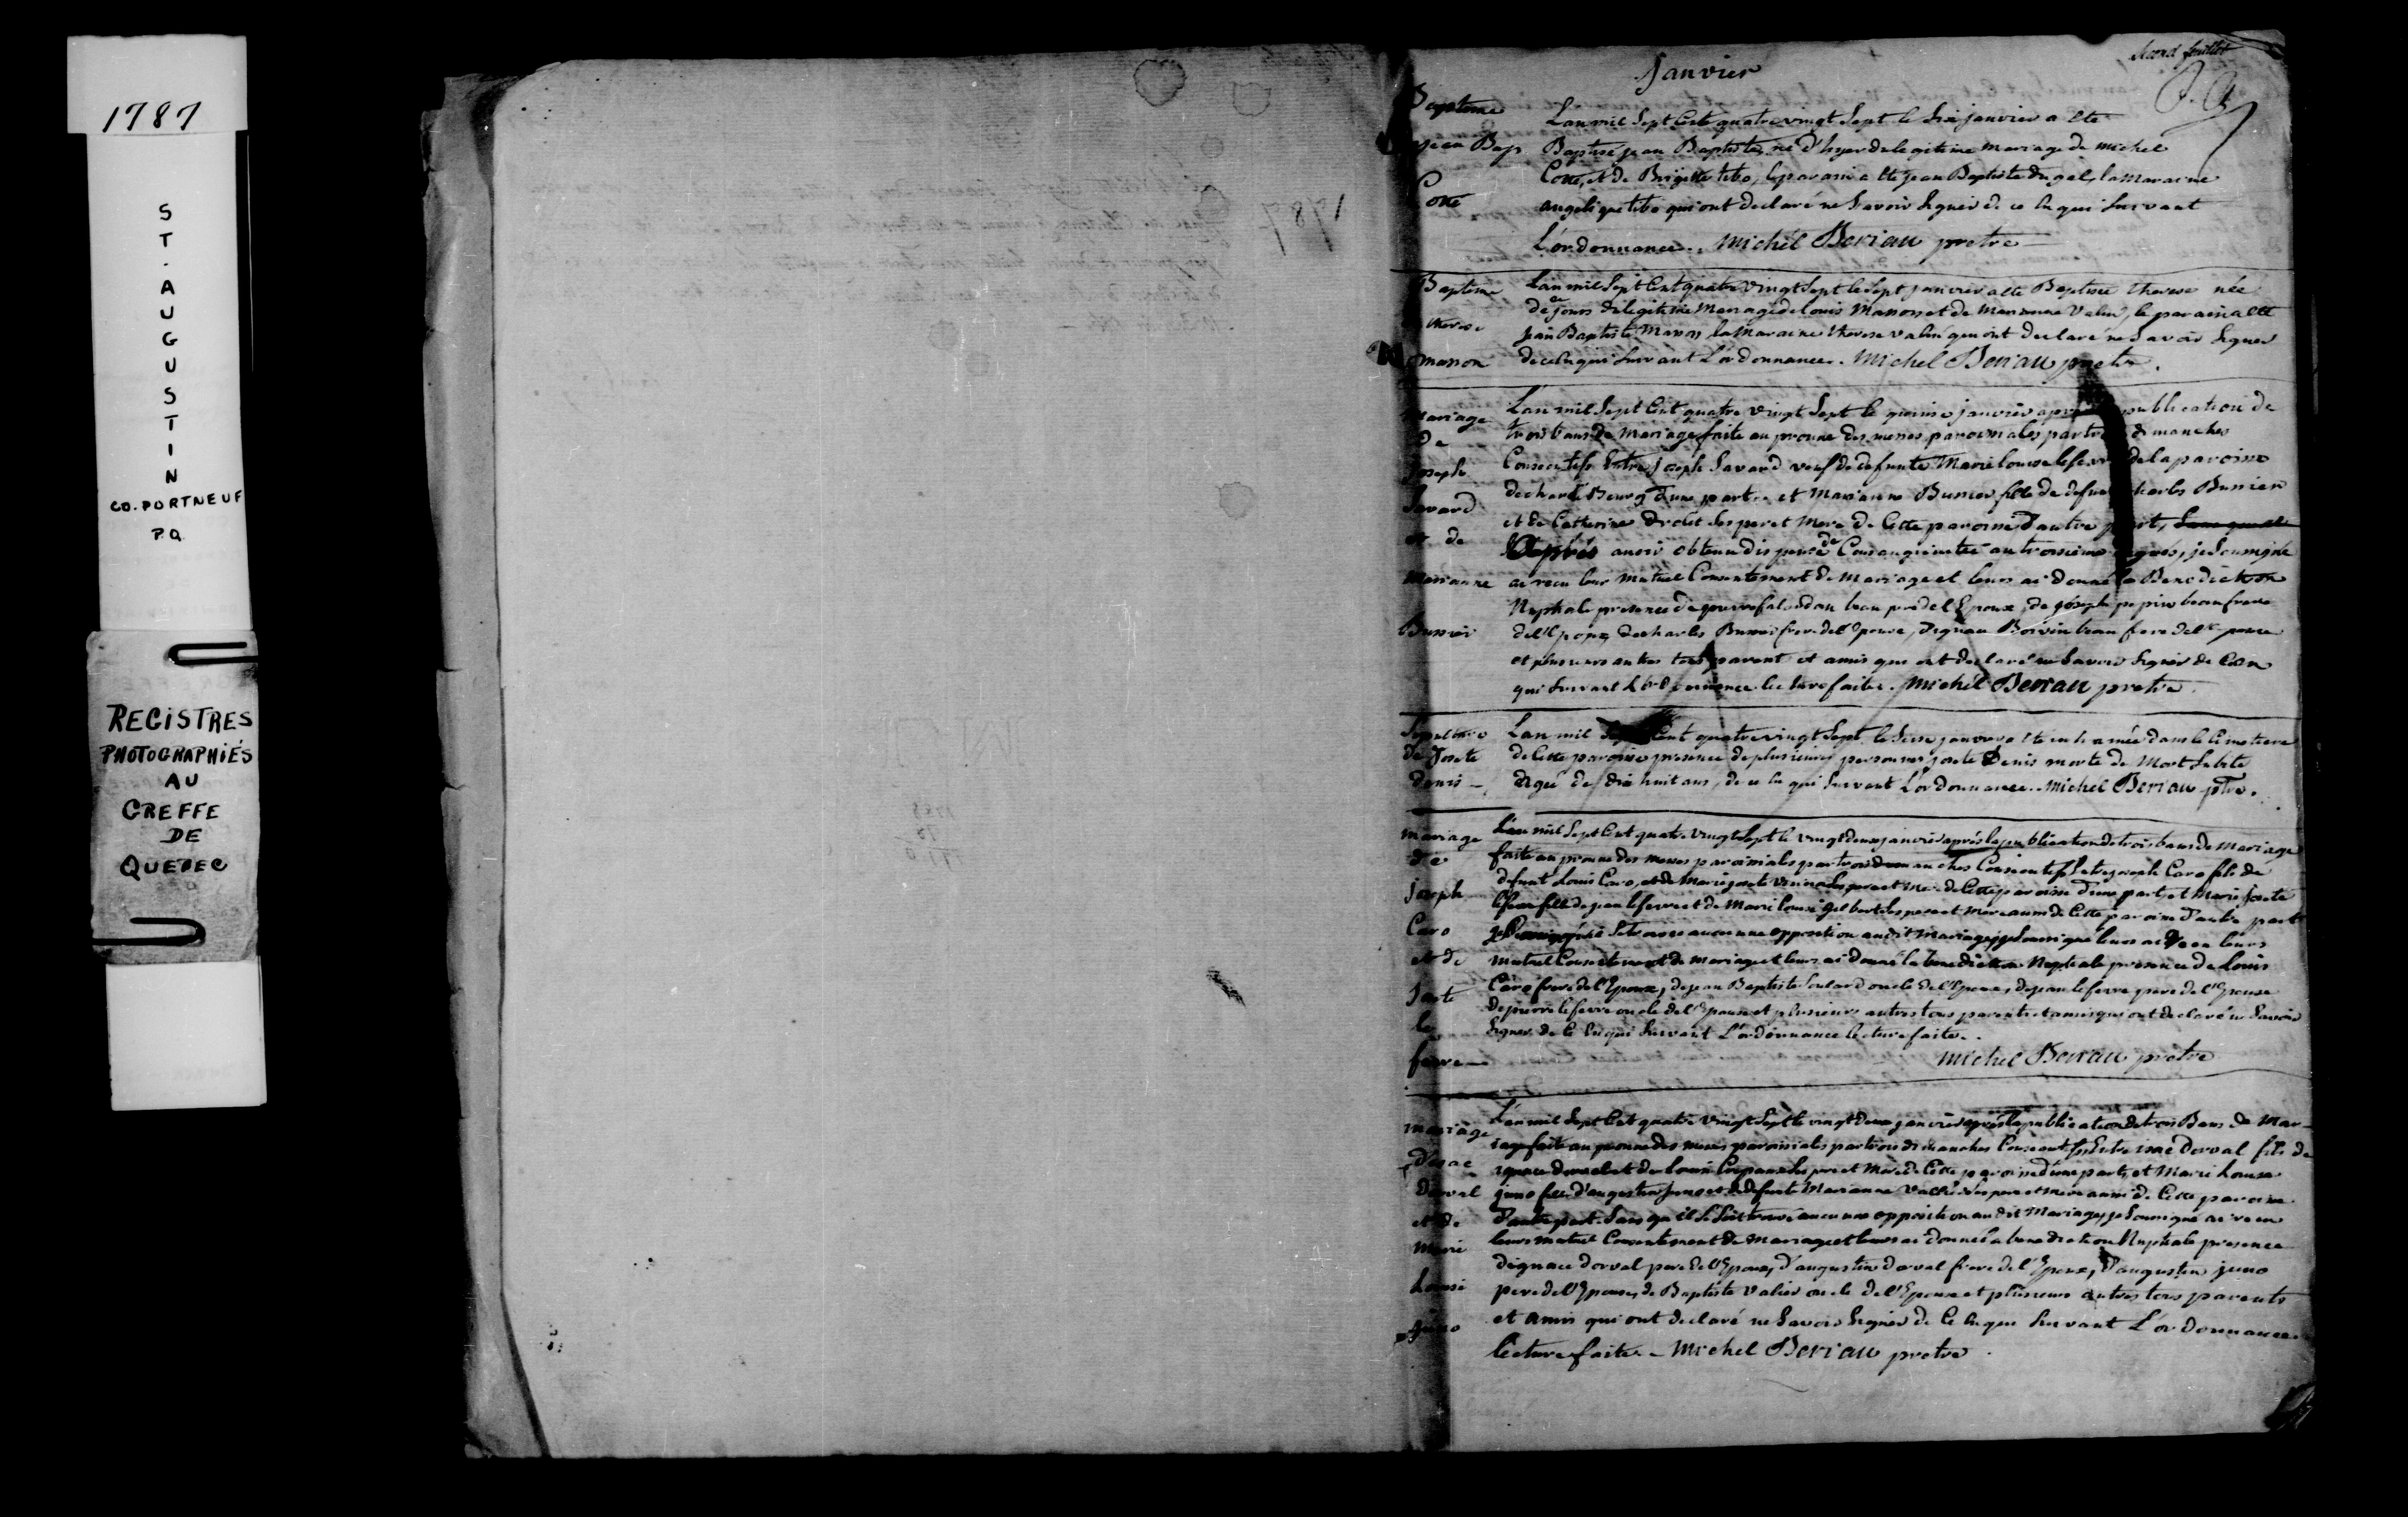 1787
ST. AUGUSTIN
CO. PORTNEUF
P.Q.
REGISTRES
PHOTOGRAPHIÉS
AU
GREFFE
DE
QUEBEC
1787
Second feuillet
Janvier
Bapteme
jean Bap
Cotté
L'an mil Sept Cent quatre vingt Sept le Six janvier a été
Baptisé jean Baptiste né d'hyer du legitime mariage de michel
Cotté, et de Brigitte tibo, le parain a été jean Baptiste dugal, la Maraine
angelique tibo qui ont declaré ne Savoir Signer de ce Enqui Suivant
L'ordonnance. Michel Beriau pretre
Bapteme
therese
manson
L'an mil Sept Cent quatre Vingt Sept le Sept janvier a été Baptisée therese née
de ce jours du legitime Mariage de Louis Manson et de Marianne Valin, le parain a été
jean Baptiste Manson, la Maraine therese valin qui ont declaré ne Savoir Signer
de ce Enqui Suivant L'ordonnance. Michel Beriau pretre.
Mariage
de
joseph
Savard
et de
Marianne
Bussier
L'an mil Sept Cent quatre vingt Sept le quinse janvier après publication de
trois bans de Mariage faite au prone des meses paroisiales par trois dimanches
Consecutifs Entre joseph Savard veuf de defunte Marie louise lefevre de la paroise
de charle Bourg d'une part et Marianne Bussier fille de defunt charles Bussier
et de Catherine drolet Ses per et Mere de Cette paroise d'autre part,
Après avoir obtenu dispense de Consanguinitée au troisieme degrés, je Sousigné
ai recu leur Mutuel Consentement de Mariage et leurs ai donné la Benediction
Nuptiale presence de pierre falardau beau pere de l'Epoux, de joseph pepin beau frere
de l'Epoux, de charles Bussier frere de l'Epouse, d'ignace Boivin beau frere de l'epouse
et plusieurs autres tous parents et amis qui ont declaré ne Savoir Signer de Ce En
qui Suivant L'ordonnance lecture faite. Michel Beriau pretre.
Sepulture
de Josete
denis
L'an mil Sept Cent quatre vingt Sept le Seise janvier a été inhumée dans le Cimetiere
de Cette paroise presence de plusieurs personnes josete Denis morte de Mort Subite
agée de dix huit ans, de ce En qui Suivant L'ordonnance. Michel Beriau ptre.
mariage
de
joseph
Caro
et de
Josete
le
fevre
L'an mil Sept Cent quatre vingt Sept le vingt deux janvier après la publication de trois bans de Mariage
faite au prone des meses paroisiales par trois dimanches Consecutifs Entre joseph Caro fils de
defunt Louis Caro, et de Marie josete Vesina Ses pere et Mere de Cette paroise d'une part, et Marie Josete
lefevre fille de jean lefevre et de Marie louise Gilbert Ses pere et Mere aussi de Cette paroise d'autre part
Se trouve aucune opposition au dit Mariage, je Sousigné leurs ai Recu leurs
Mutuel Consentement de mariage et leurs ai donné la benediction Nuptiale presence de Louis
Caro frere de l'Epoux, de jean Baptiste Soulard oncle de l'Epoux, de jean lefevre pere de l'Epouse
de pierre lefevre oncle de l'Epouse et plusieurs autres tous parents et amis qui ont declaré ne Savoir
Signer de Ce Enqui Suivant L'ordonnance lecture faite.
Michel Beriau pretre
mariage
d'isac
dorval
et de
Marie
Louise
juno
L'an mil Sept Cent quatre Vingt Sept le vingt deux janvier après la publication de trois Bans de Mar-
iage faite au prone des meses paroisiales par trois dimanches Consecutifs Entre isac Dorval fils de
ignace dorval et de louise Ses pere et Mere de Cette paroise d'une part, et Marie Louise
juno fille d'augustin juno et de defunte Marianne Vallée Ses pere et mere aussi de Cette paroise
d'autre part. Sans qu'il Se Soit trouvé aucune opposition au dit Mariage, je Sousigné ai recu
leurs mutuel Consentement de Mariage et leurs ai donné la benediction Nuptiale presence
d'ignace dorval pere de l'Epoux, d'augustin dorval frere de l'Epoux, d'augustin juno
pere de l'Epouse, de Baptiste Valier oncle de l'Epouse et plusieurs autres tous parents
et amis qui ont declaré ne Savoir Signer de Ce Enqui Suivant L'ordonnance
lecture faite. Michel Beriau pretre.